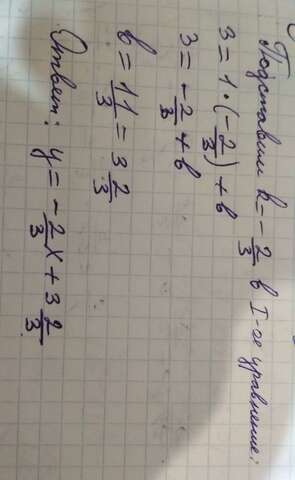 Подставим k = -2/3 в I-ое уравнение:
3 = 1 · (-2/3) + b
3 = -2/3 + b
b = 11/3 = 3 2/3
Ответ: y = -2/3 x + 3 2/3